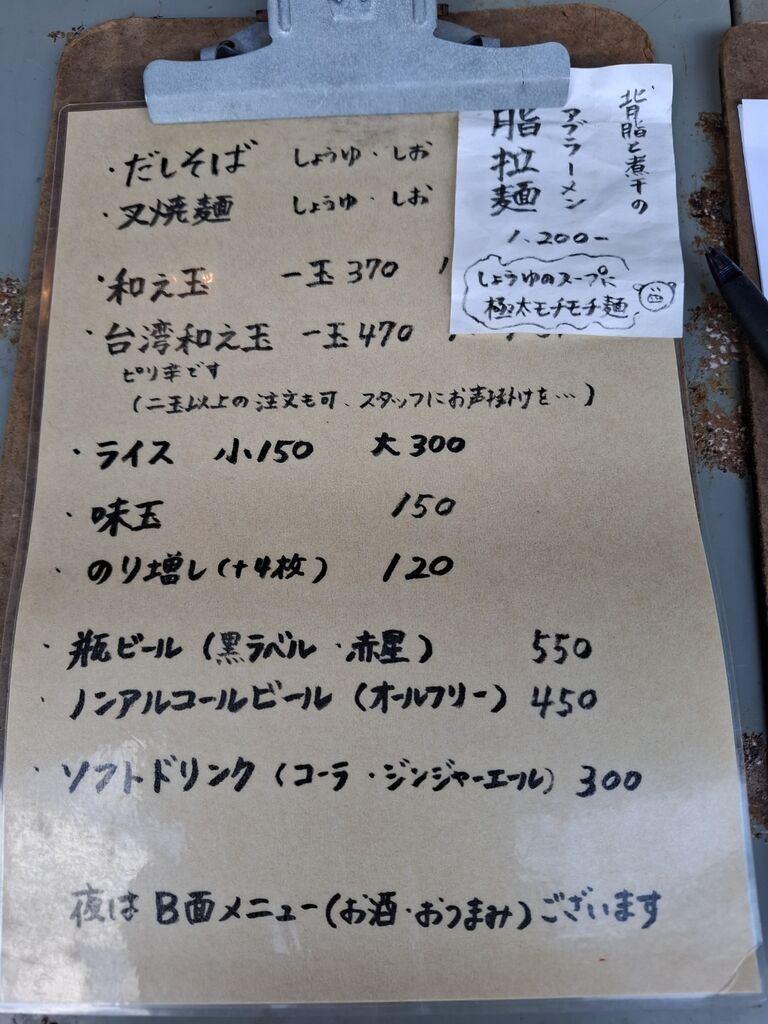 ・だしそば しょうゆ・しお
・叉焼麺 しょうゆ・しお
・和え玉 一玉 370
・台湾和え玉 一玉 470
ピリ辛です
(二玉以上の注文も可、スタッフにお声掛けを…)
・ライス 小150 大300
・味玉 150
・のり増し(+4枚) 120
・瓶ビール(黒ラベル・赤星) 550
・ノンアルコールビール(オールフリー) 450
・ソフトドリンク(コーラ・ジンジャーエール) 300
夜はB面メニュー(お酒・おつまみ)ございます
背脂と煮干の
アブラーメン
脂拉麺
1,200-
しょうゆのスープに
極太モチモチ麺